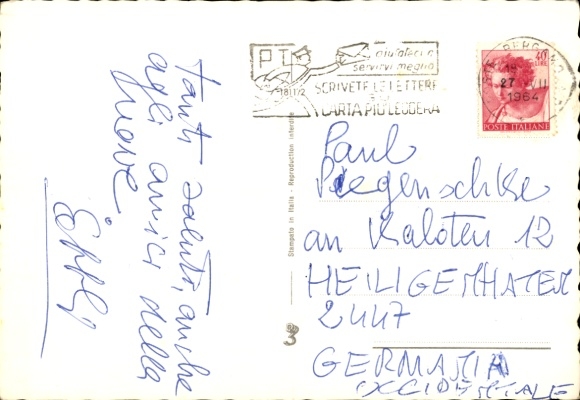 Tanti saluti, anche
agli amici della
nave
P T
aiutateci a
servirvi meglio
SCRIVETE LE LETTERE
CARTA PIÙ LEGGERA
BERGAMO
27 VII
1964
40
LIRE
POSTE ITALIANE
Stampato in Italia - Reproduction interdite
Paul
an Kaloten 12
HEILIGENHAFEN
2447
GERMANIA
OCCIDENTALE
3